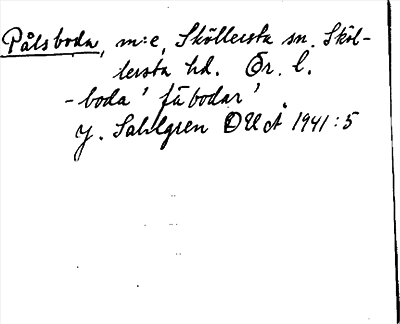 Pålsboda, m:e, Sköllersta sn. Sköl-
lersta hd. Ör. l.
-boda 'fäbodar'
J. Sahlgren OUÅ 1941:5